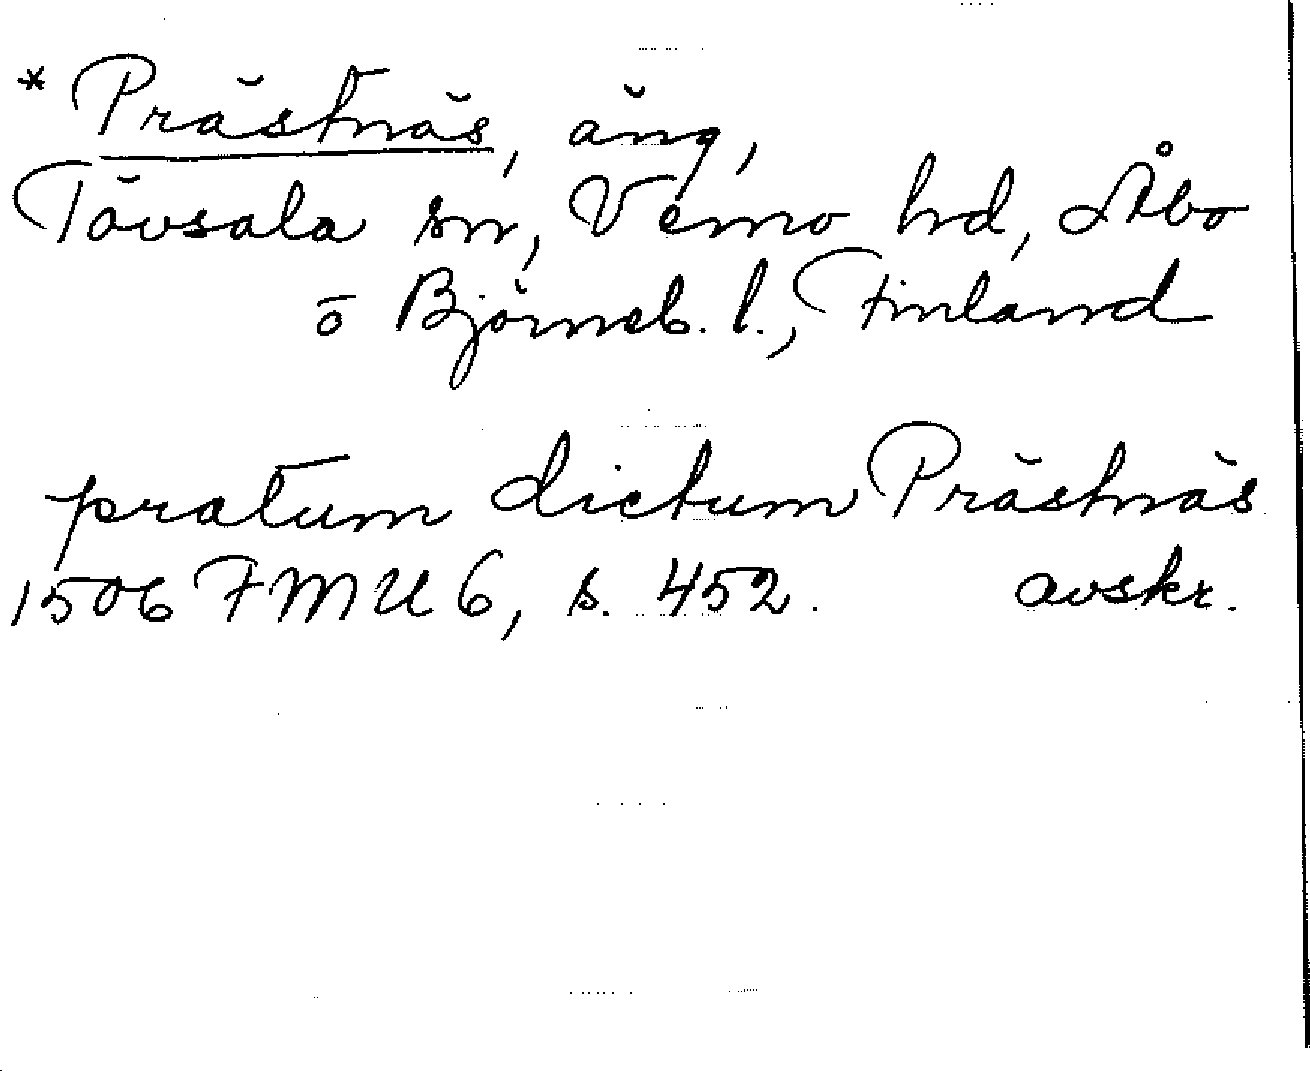 * Prästnäs, äng,
Tövsala sn, Vemo hd, Åbo
o Björneb. l., Finland
pratum dictum Prästnäs
1506 FMU 6, s. 452. avskr.